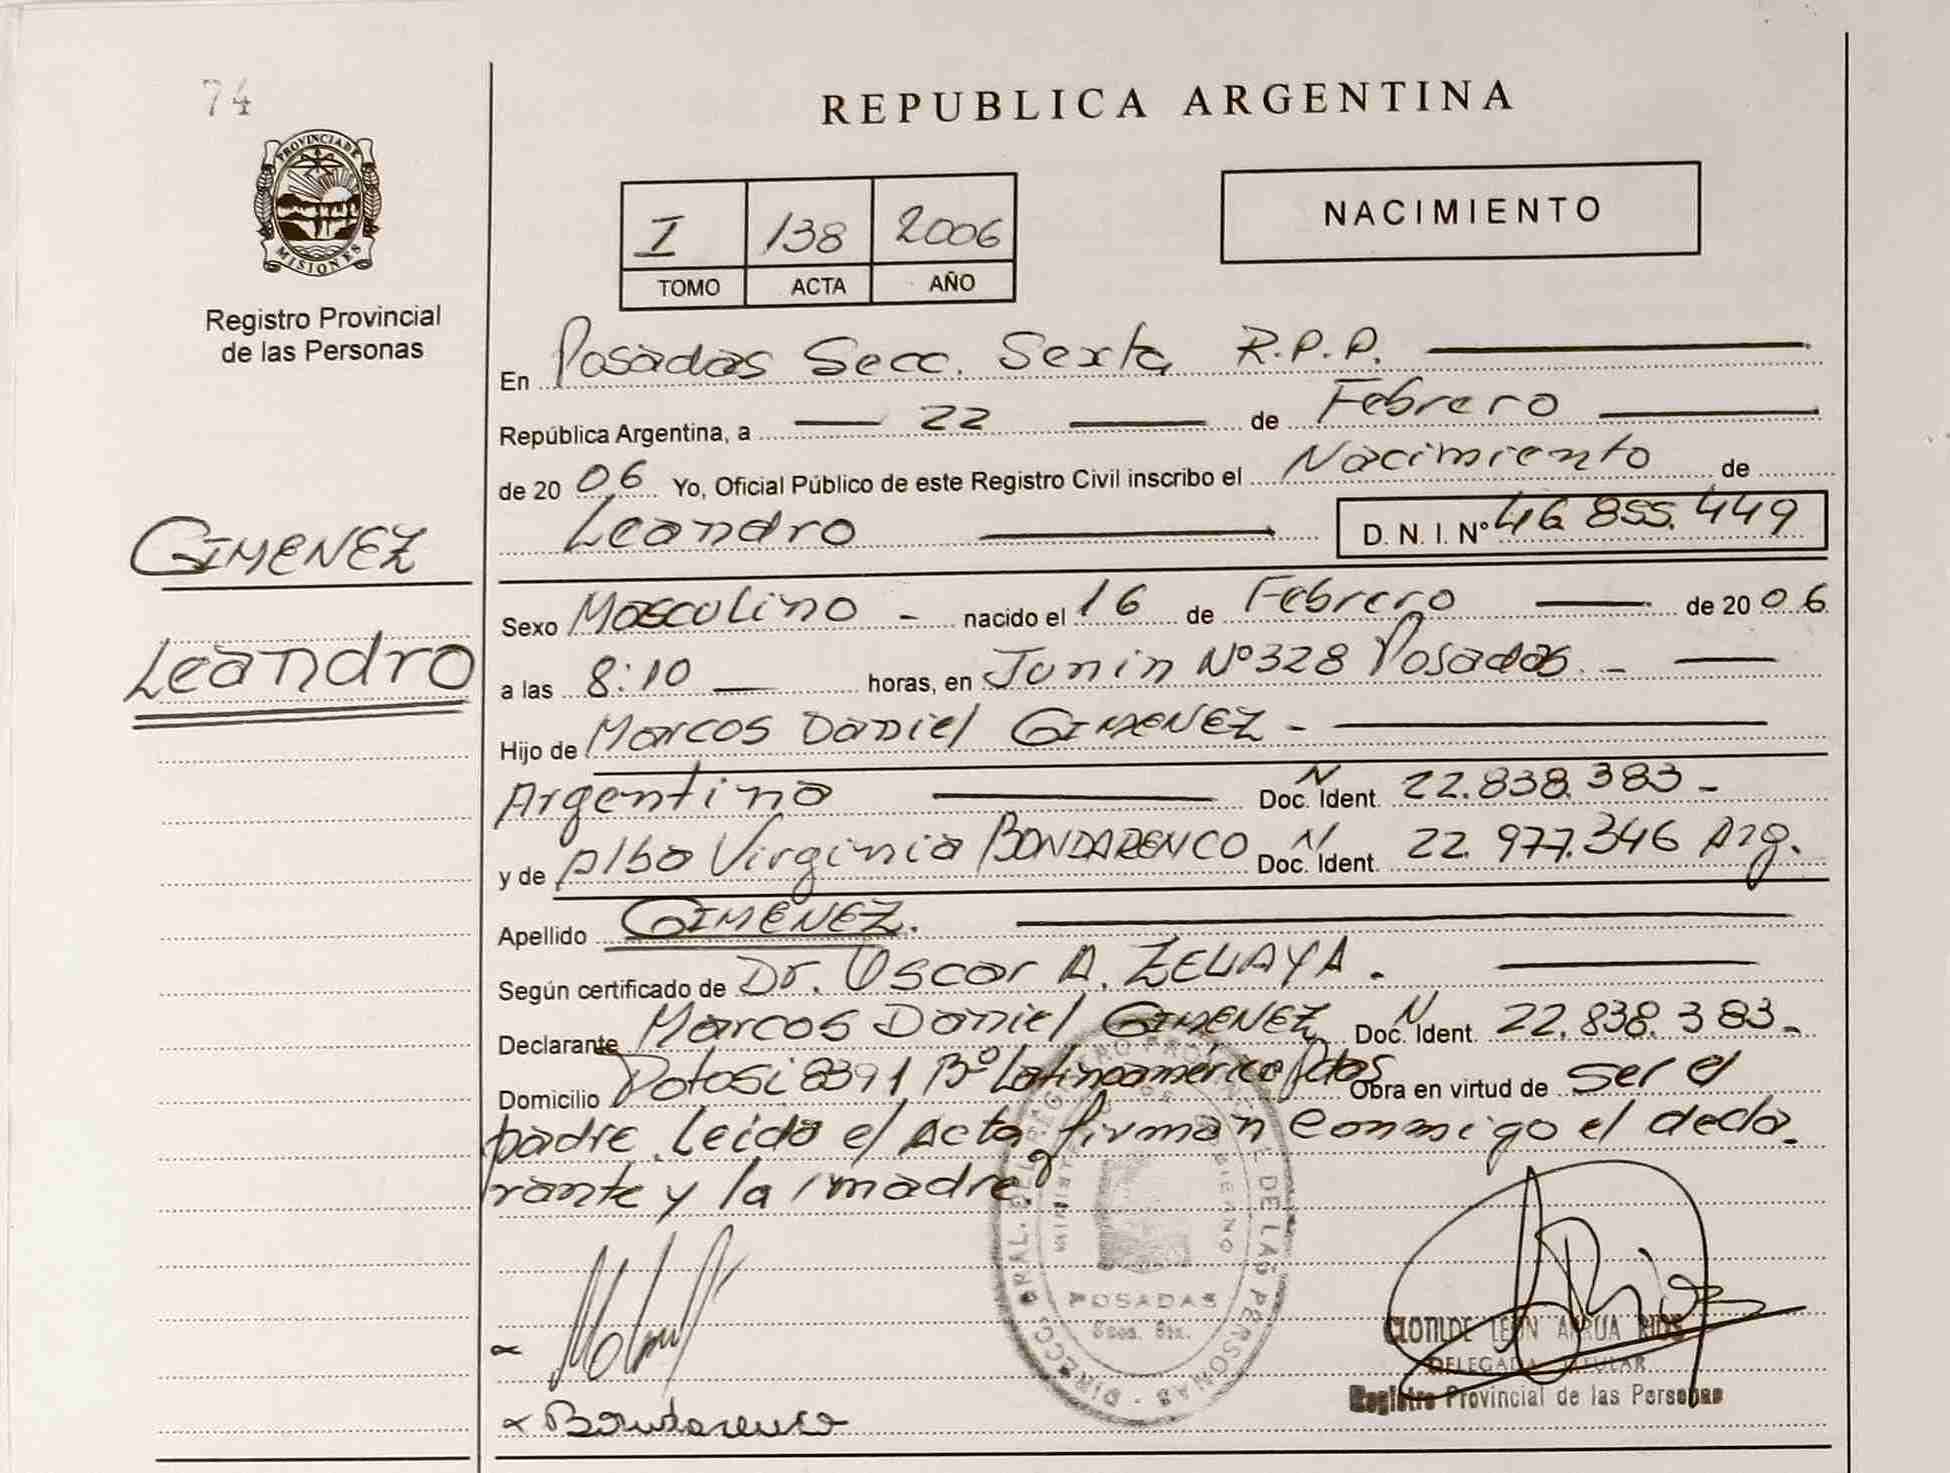 74
REPUBLICA ARGENTINA
PROVINCIA DE
MISIONES
Registro Provincial
de las Personas
I 138 2006
TOMO ACTA AÑO
NACIMIENTO
En Posadas Secc. Sexta R.P.P.
República Argentina, a 22 de Febrero
de 2006 Yo, Oficial Público de este Registro Civil inscribo el Nacimiento de
Leandro D. N. I. Nº 46.855.449
GIMENEZ
Leandro
Sexo Masculino - nacido el 16 de Febrero de 2006
a las 8:10 horas, en Junin Nº 328 Posadas. -
Hijo de Marcos Daniel GIMENEZ -
Argentino Doc. N Ident. 22.838.383 -
y de Alba Virginia BONDARENCO Doc. N Ident. 22.977.346 Arg.
Apellido GIMENEZ.
Según certificado de Dr. Oscar A. ZELAYA.
Declarante Marcos Daniel GIMENEZ Doc. N Ident. 22.838.383 -
Domicilio Potosi 8391 Bº Latinoamérica Pdas Obra en virtud de ser el
padre. Leida el Acta, firman conmigo el decla-
rante y la madre
DIRECC. GRAL. DEL REGISTRO PROVINCIAL DE LAS PERSONAS
MINISTERIO DE GOBIERNO
POSADAS
Secc. 6ta.
CLOTILDE LEON ARRUA RIOS
DELEGADA TITULAR
Registro Provincial de las Personas
Bondarenco